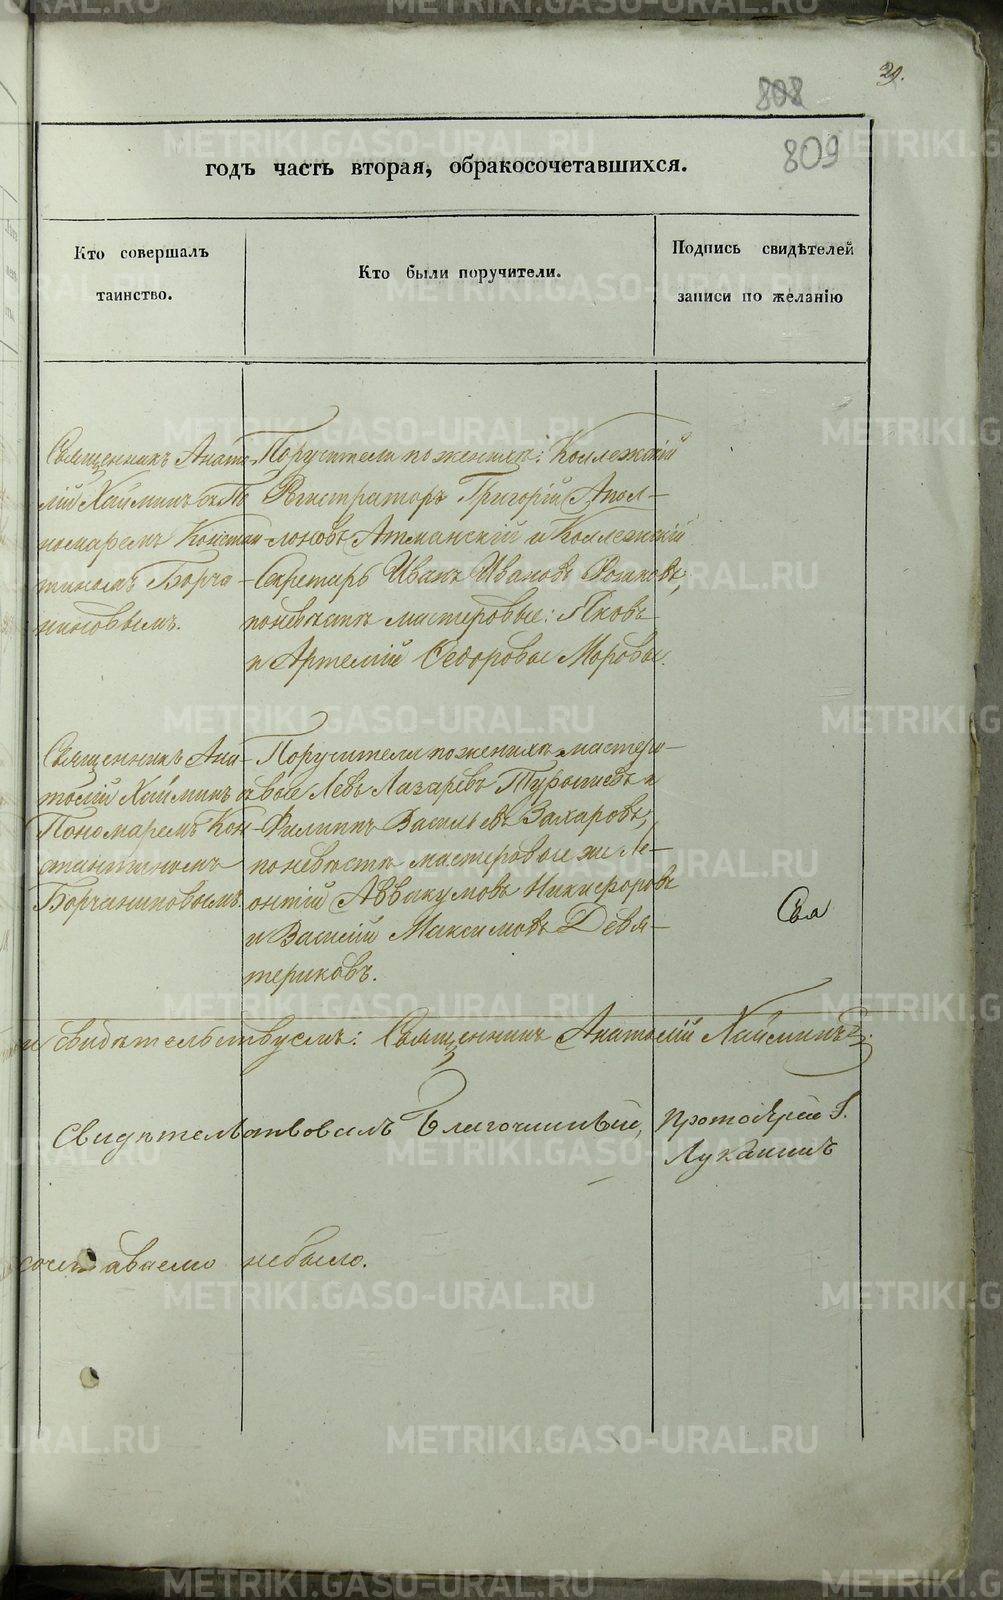 29.
808
809
годъ часть вторая, обракосочетавшихся.
Кто совершалъ
таинство.
Кто были поручители.
Подпись свидѣтелей
записи по желанію
Священникъ Анато-
лій Хайминъ съ По
номаремъ Констан
тиномъ Борча-
ниновымъ.
Поручители по женихѣ: Коллежскій
Регистраторъ Григорій Апол-
лоновъ Атманскій и Коллежскій
Секретарь Иванъ Ивановъ
по невѣстѣ мастеровые: Яковъ
и Артемій Ѳедоровы Моровы.
Священникъ Ана-
толій Хайминъ съ
Пономаремъ Кон-
стантиномъ
Борчаниновымъ.
Поручители по женихѣ мастеро-
вые Левъ Лазаревъ и
Филиппъ Васильевъ Захаровъ,
по невѣстѣ мастеровые же Ле-
онтій Аввакумовъ Никифоровъ
и Василій Максимовъ Девя-
териковъ.
свидѣтельствуемъ: Священникъ Анатолій Хайминъ
Свидѣтельствовалъ Благочинный, Протоіерей
Луканинъ
сочетаваемо небыло.
METRIKI.GASO-URAL.RU